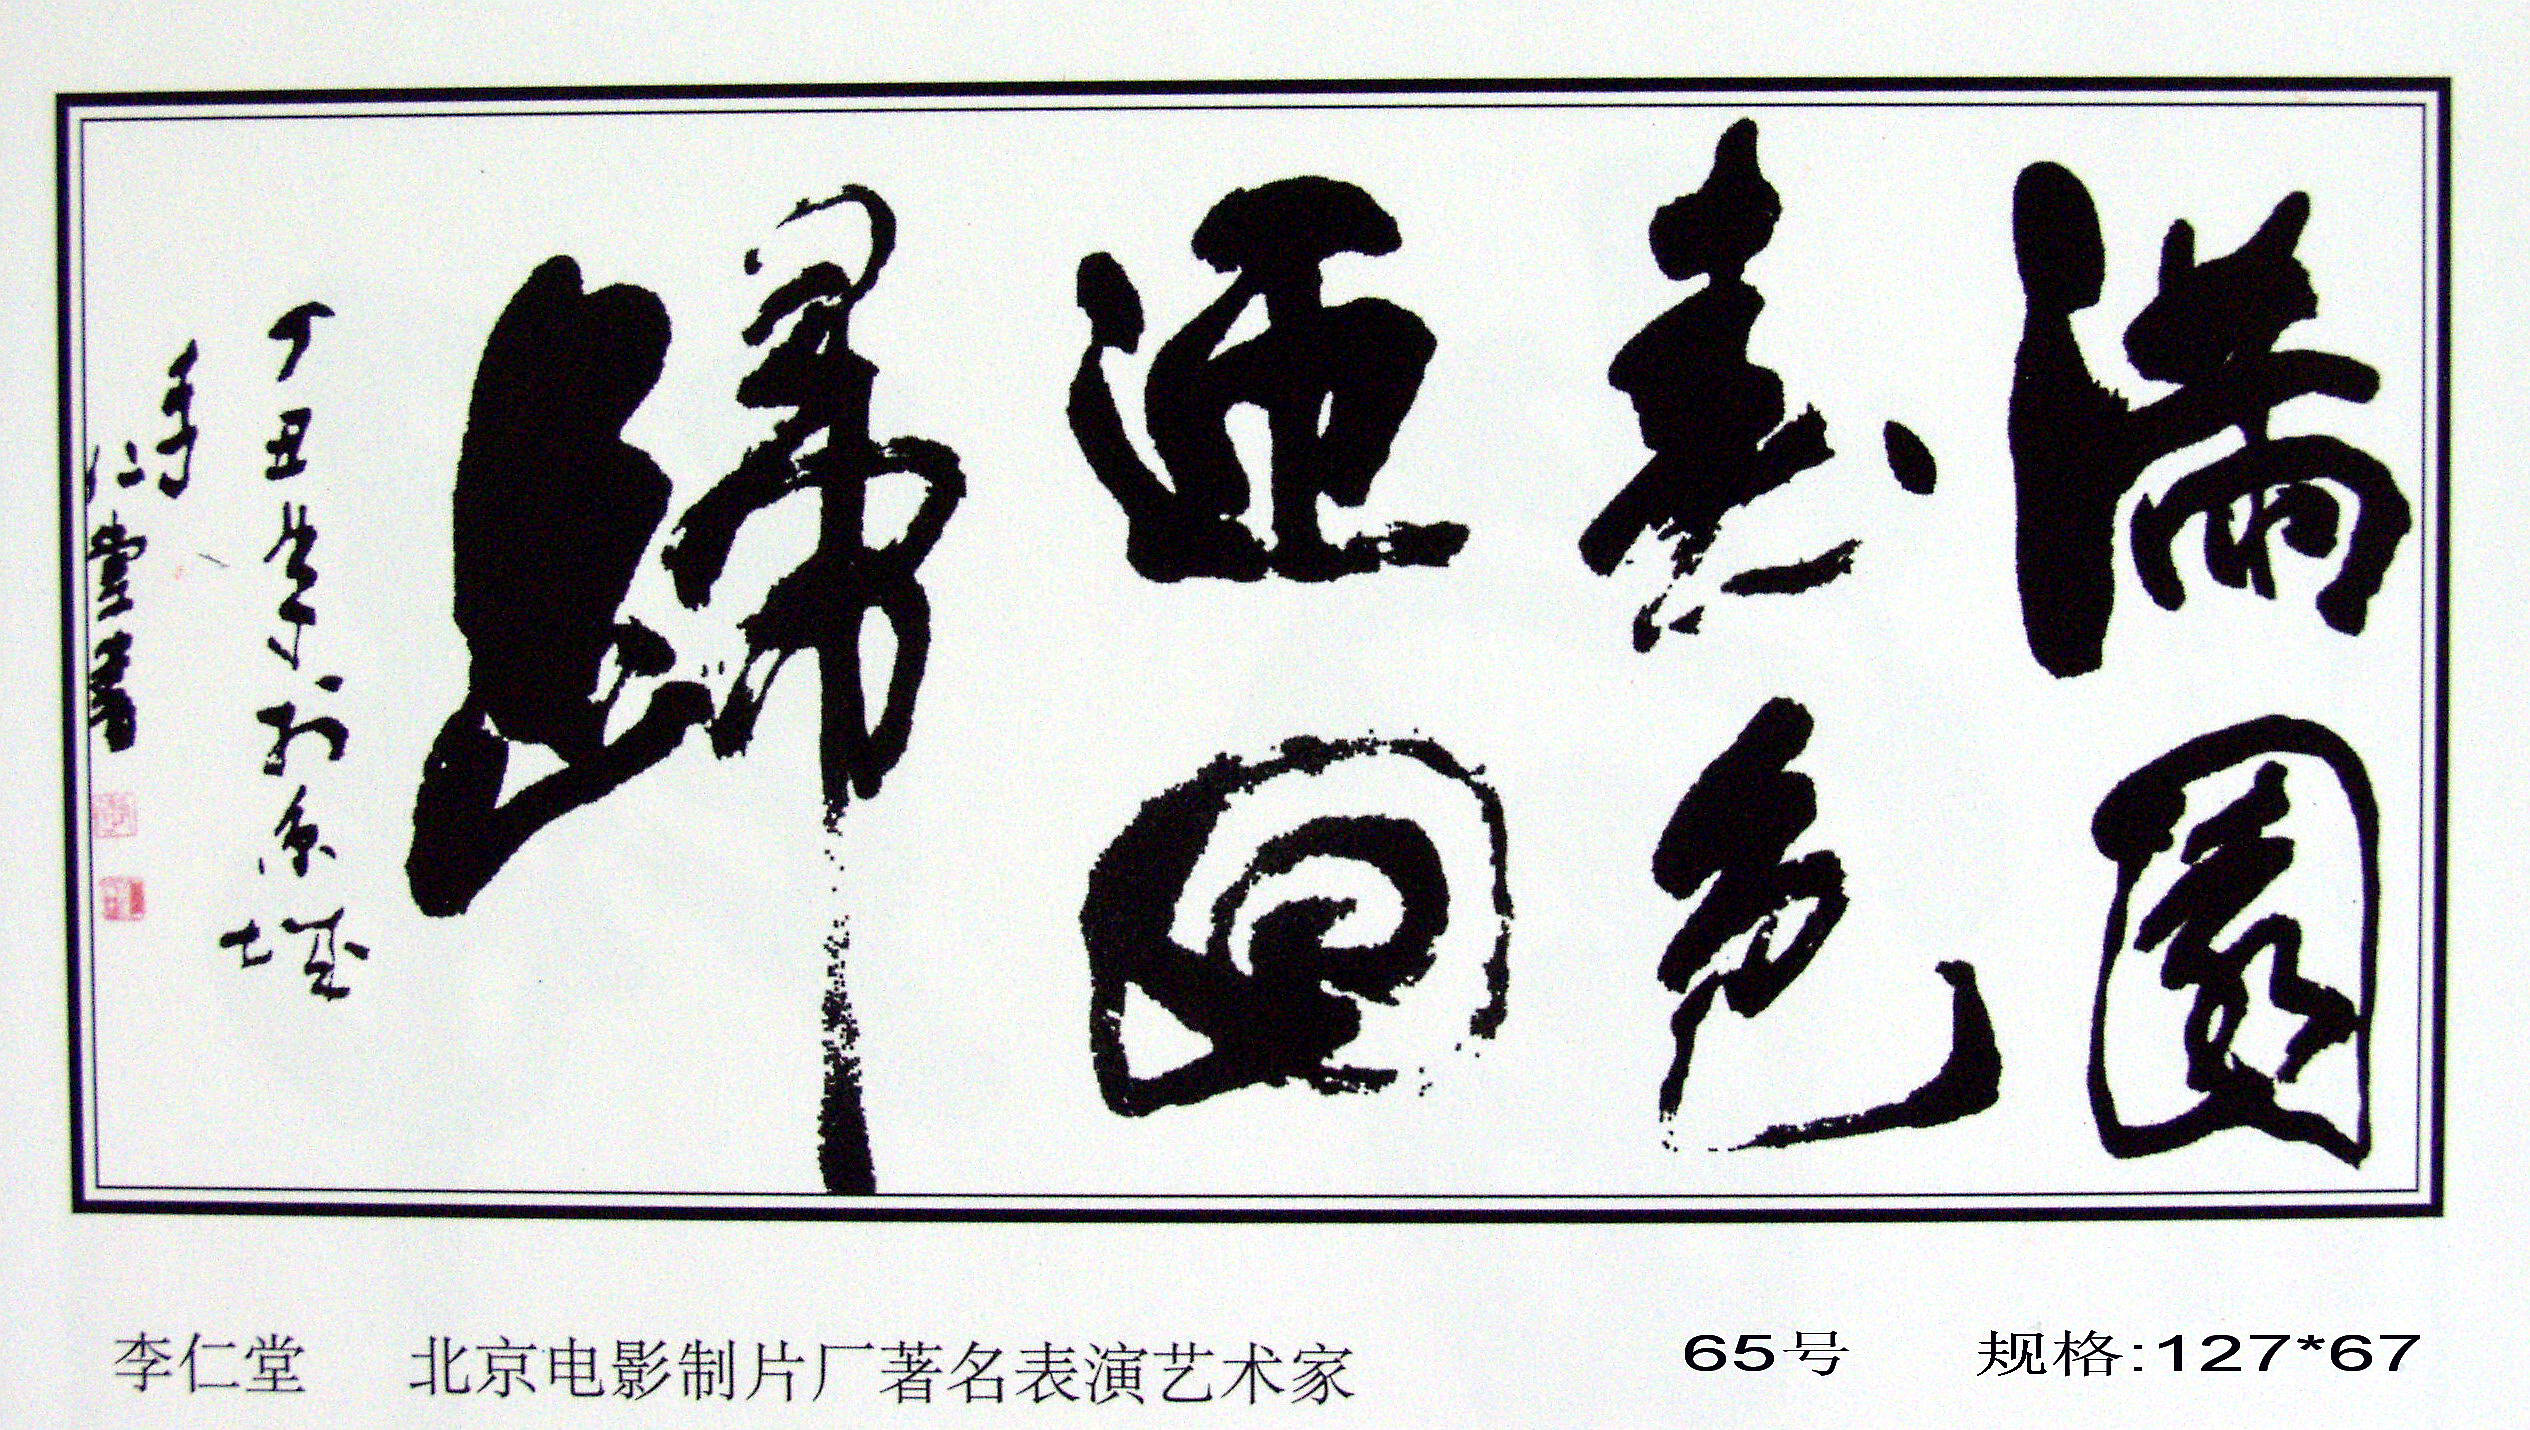 滿園
春色
迎回
歸
丁丑 京城
李仁堂書
李仁堂 北京电影制片厂著名表演艺术家 65号 规格:127*67